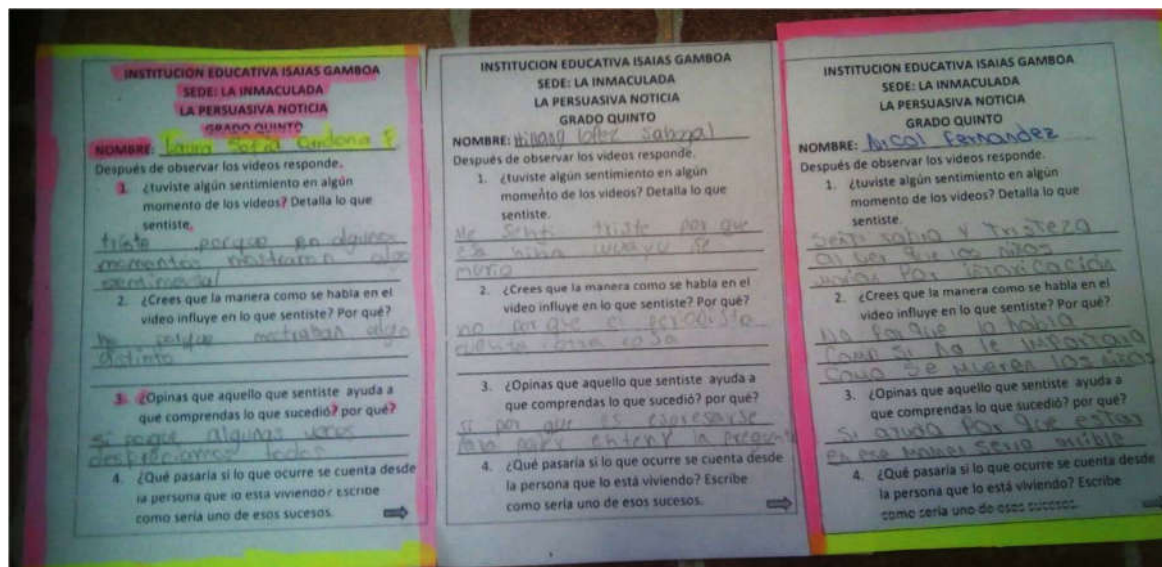 INSTITUCION EDUCATIVA ISAIAS GAMBOA
SEDE: LA INMACULADA
LA PERSUASIVA NOTICIA
GRADO QUINTO
NOMBRE: Laura Sofia Cardona F
Después de observar los videos responde.
1. ¿tuviste algún sentimiento en algún
momento de los videos? Detalla lo que
sentiste.
triste porque en algunos
momentos mostraron algo
sentimental
2. ¿Crees que la manera como se habla en el
video influye en lo que sentiste? Por qué?
no porque mostraban algo
distinto
3. ¿Opinas que aquello que sentiste ayuda a
que comprendas lo que sucedió? por qué?
si porque algunas veces
despreciamos todos
4. ¿Qué pasaría si lo que ocurre se cuenta desde
la persona que lo está viviendo? Escribe
como sería uno de esos sucesos.
INSTITUCION EDUCATIVA ISAIAS GAMBOA
SEDE: LA INMACULADA
LA PERSUASIVA NOTICIA
GRADO QUINTO
NOMBRE: lopez Sabogal
Después de observar los videos responde.
1. ¿tuviste algún sentimiento en algún
momento de los videos? Detalla lo que
sentiste.
Me senti triste por que
esa niña se
murio
2. ¿Crees que la manera como se habla en el
video influye en lo que sentiste? Por qué?
no por que el
cosa
3. ¿Opinas que aquello que sentiste ayuda a
que comprendas lo que sucedió? por qué?
si por que es espresarse
para la pregunta
4. ¿Qué pasaría si lo que ocurre se cuenta desde
la persona que lo está viviendo? Escribe
como sería uno de esos sucesos.
INSTITUCION EDUCATIVA ISAIAS GAMBOA
SEDE: LA INMACULADA
LA PERSUASIVA NOTICIA
GRADO QUINTO
NOMBRE: Nicol Fernandez
Después de observar los videos responde.
1. ¿tuviste algún sentimiento en algún
momento de los videos? Detalla lo que
sentiste.
senti rabia y Tristeza
al ver que los niños
por
2. ¿Crees que la manera como se habla en el
video influye en lo que sentiste? Por qué?
No Por que lo habla
Como si no le importara
Como se mueren los niños
3. ¿Opinas que aquello que sentiste ayuda a
que comprendas lo que sucedió? por qué?
Si ayuda Por que estar
en ese seria
4. ¿Qué pasaría si lo que ocurre se cuenta desde
la persona que lo está viviendo? Escribe
como sería uno de esos sucesos.